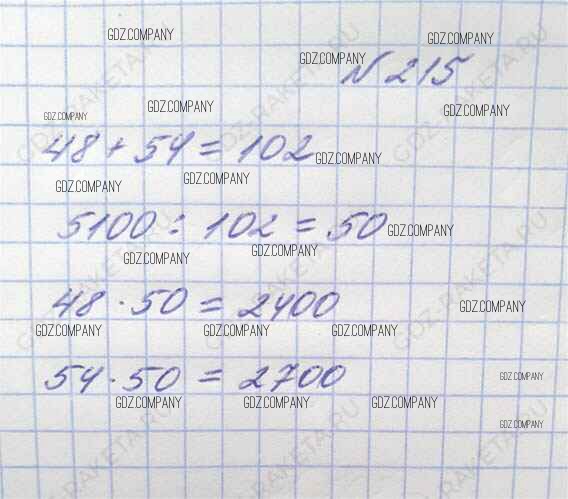 GDZ.COMPANY GDZ.COMPANY
GDZ.COMPANY № 215
GDZ.COMPANY GDZ.COMPANY
GDZ.COMPANY
48 + 54 = 102 GDZ.COMPANY
GDZ.COMPANY GDZ.COMPANY
5100 : 102 = 50 GDZ.COMPANY
GDZ.COMPANY GDZ.COMPANY
48 · 50 = 2400 GDZ.COMPANY
GDZ.COMPANY GDZ.COMPANY GDZ.COMPANY
54 · 50 = 2700 GDZ.COMPANY
GDZ.COMPANY GDZ.COMPANY GDZ.COMPANY
GDZ.COMPANY
GDZ-RAKETA.RU
GDZ-RAKETA.RU
GDZ-RAKETA.RU
GDZ-RAKETA.RU
GDZ-RAKETA.RU
GDZ-RAKETA.RU